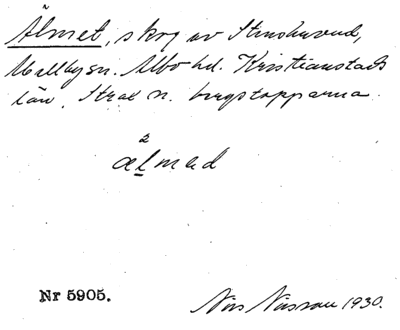 Älmet, skog av Stenshuvud,
Mellby sn. Albo hd. Kristianstads
län. Strax n. bergstopparna.
2
ælmad
Nr 5905.
Nils 1930.